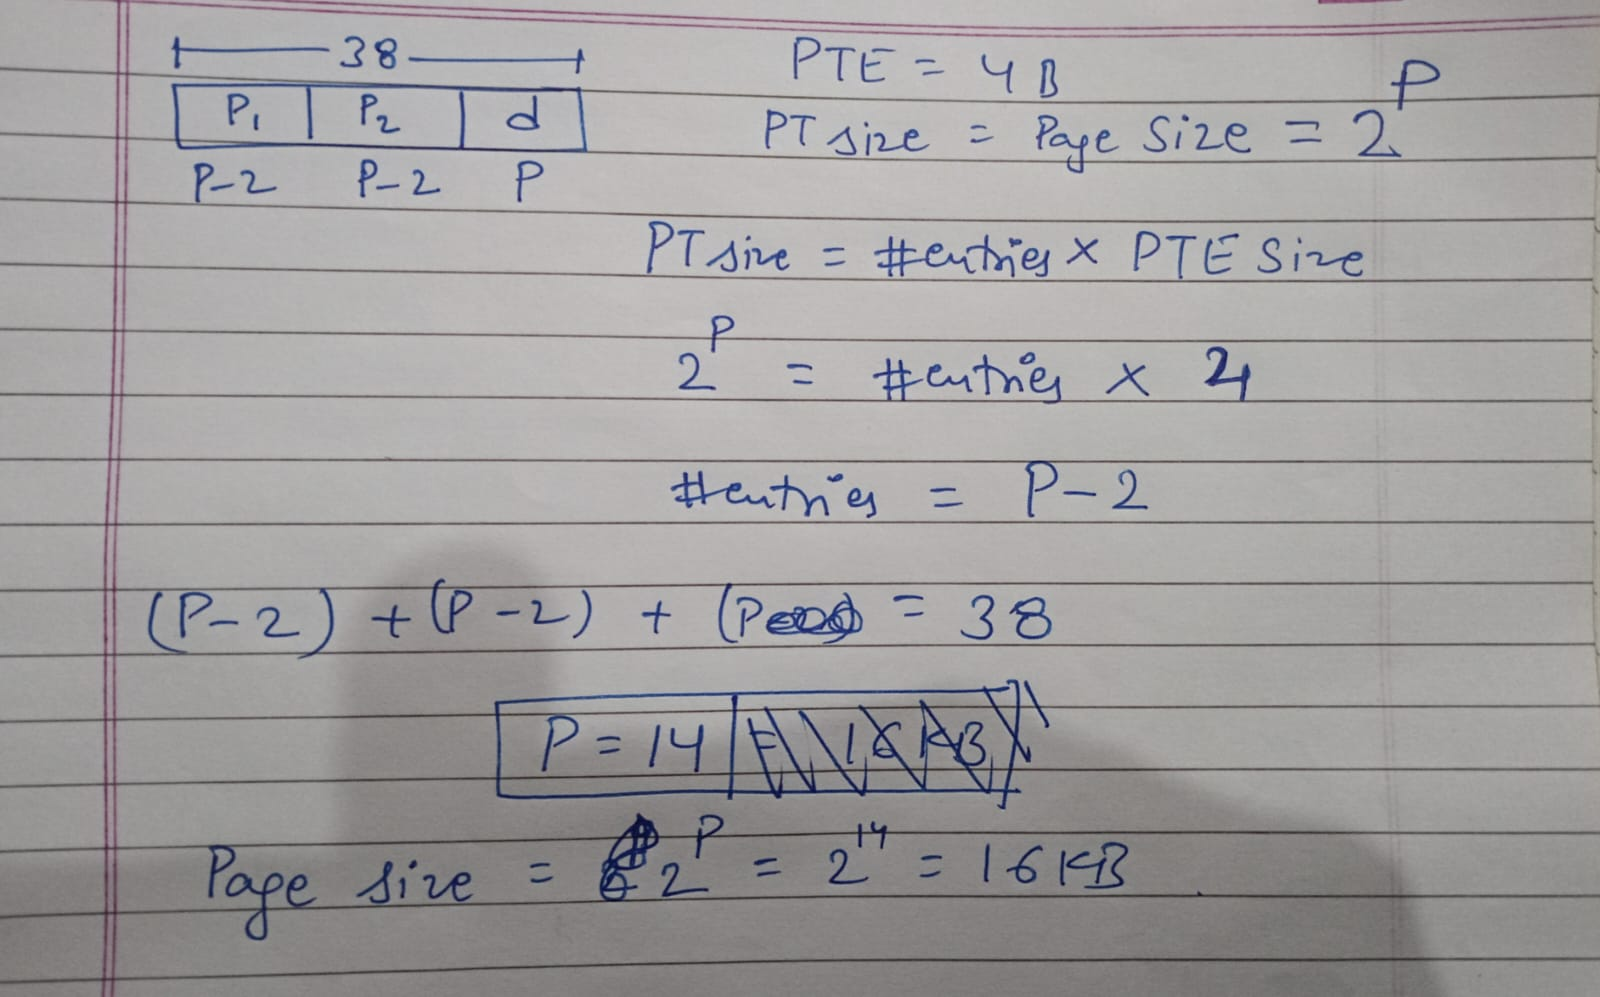 38
P₁ P₂ d
P-2 P-2 P
PTE = 4B
PT size = Page Size = 2^P
PT size = #entries × PTE Size
2^P = #entries × 4
#entries = P-2
(P-2) + (P-2) + (P = 38
P = 14
Page size = 2^P = 2^14 = 16KB